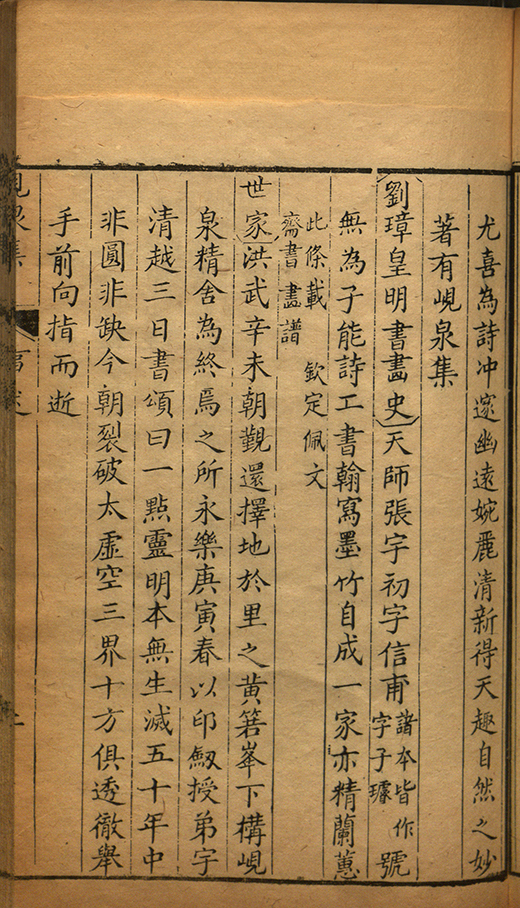 尤喜為詩冲邃幽遠婉麗清新得天趣自然之妙
著有峴泉集
劉璋皇明書畫史天師張宇初字信甫諸本皆作字子璩號
無為子能詩工書翰寫墨竹自成一家亦精蘭蕙
此條載 欽定佩文
齋書畫譜
世家洪武辛未朝覲還擇地於里之黃箬峯下構峴
泉精舍為終焉之所永樂庚寅春以印劔授弟宇
清越三日書頌曰一㸃靈明本無生滅五十年中
非圓非缺今朝裂破太虛空三界十方俱透徹舉
手前向指而逝